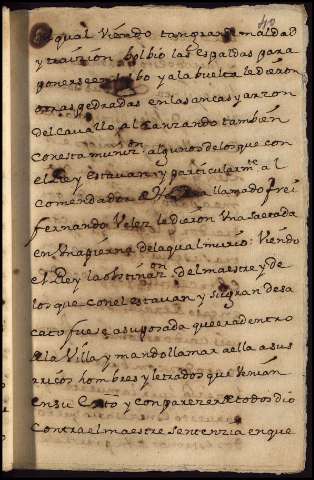 el qual Viendo tan grande maldad
y traizion bolbio las espaldas para
ponerse en salbo y a la buelta le dieron
otras pedradas en las ancas y arzon
del cavallo, alcanzando tambien
con esta munizon algunos de los que con
el Rey estavan y particularmte al
comendador de llamado frei
fernando Velez le dieron Una saetada
en Una pierna de la qual murio: Viendo
el Rey la obstinazon del maestre y de
los que con el estavan y su gran desa
cato fuese a su posada que era dentro
de la Villa y mando llamar a ella a sus
ricos hombres y letrados que Venian
en su Conso y con parezer de todos dio
contra el maestre sentenzia en que